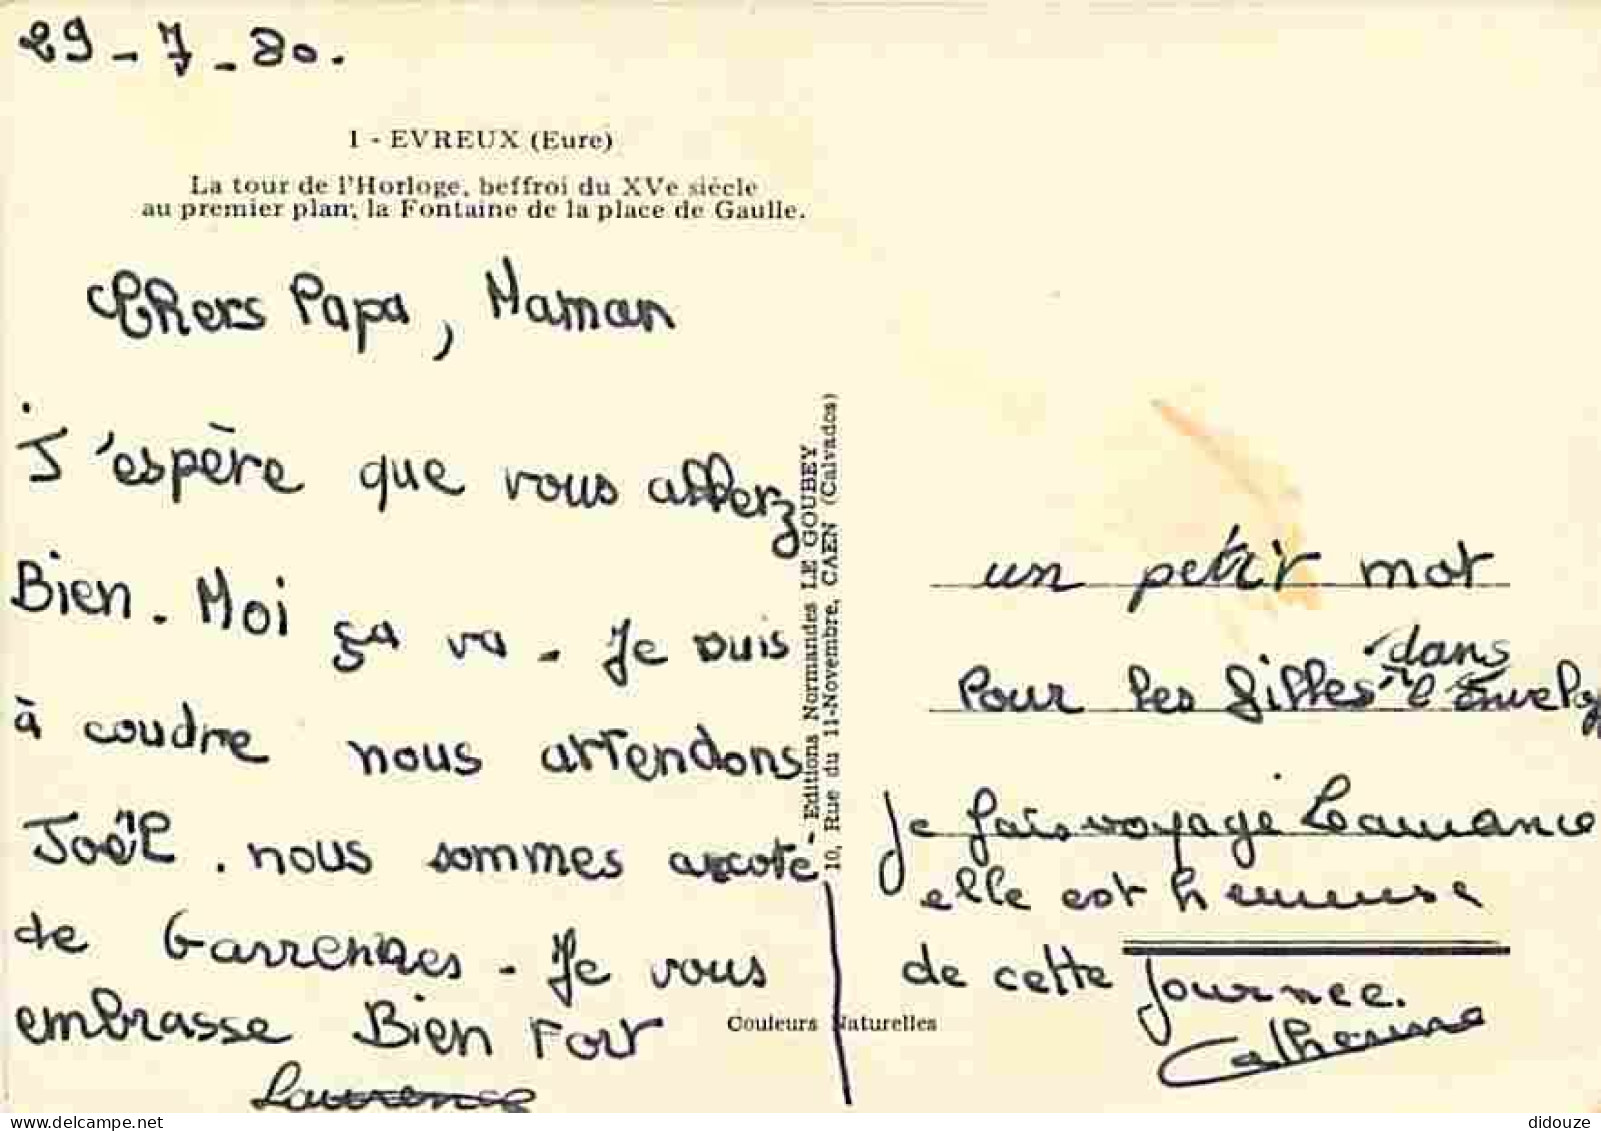 29-7-80.
1 - EVREUX (Eure)
La tour de l'Horloge, beffroi du XVe siècle
au premier plan, la Fontaine de la place de Gaulle.
Chers Papa, Maman
J'espère que vous allerz
Bien. Moi ça va - Je suis
à coudre nous attendons
Joël. nous sommes acote
de Garrennes - Je vous
embrasse Bien Fort
Laurence
- Editions Normandes LE GOUBEY
10, Rue du 11-Novembre, CAEN (Calvados)
Couleurs Naturelles
un petit mot
dans
Pour les filles l'envelop
Je fais voyagé Laurance
elle est heureuse
de cette journee.
Catherine
didouze